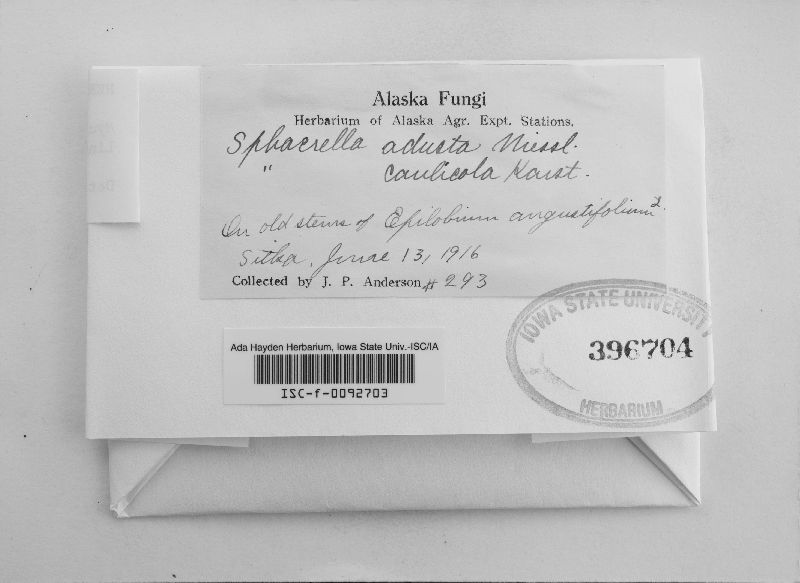 Alaska Fungi
Herbarium of Alaska Agr. Expt. Stations.
Sphaerella adusta Niessl.
" caulicola Karst.
On old stems of Epilobium angustifolium
Sitka, June 13, 1916
Collected by J. P. Anderson # 293
IOWA STATE UNIVERSITY
396704
HERBARIUM
Ada Hayden Herbarium, Iowa State Univ.-ISC/IA
ISC-f-0092703